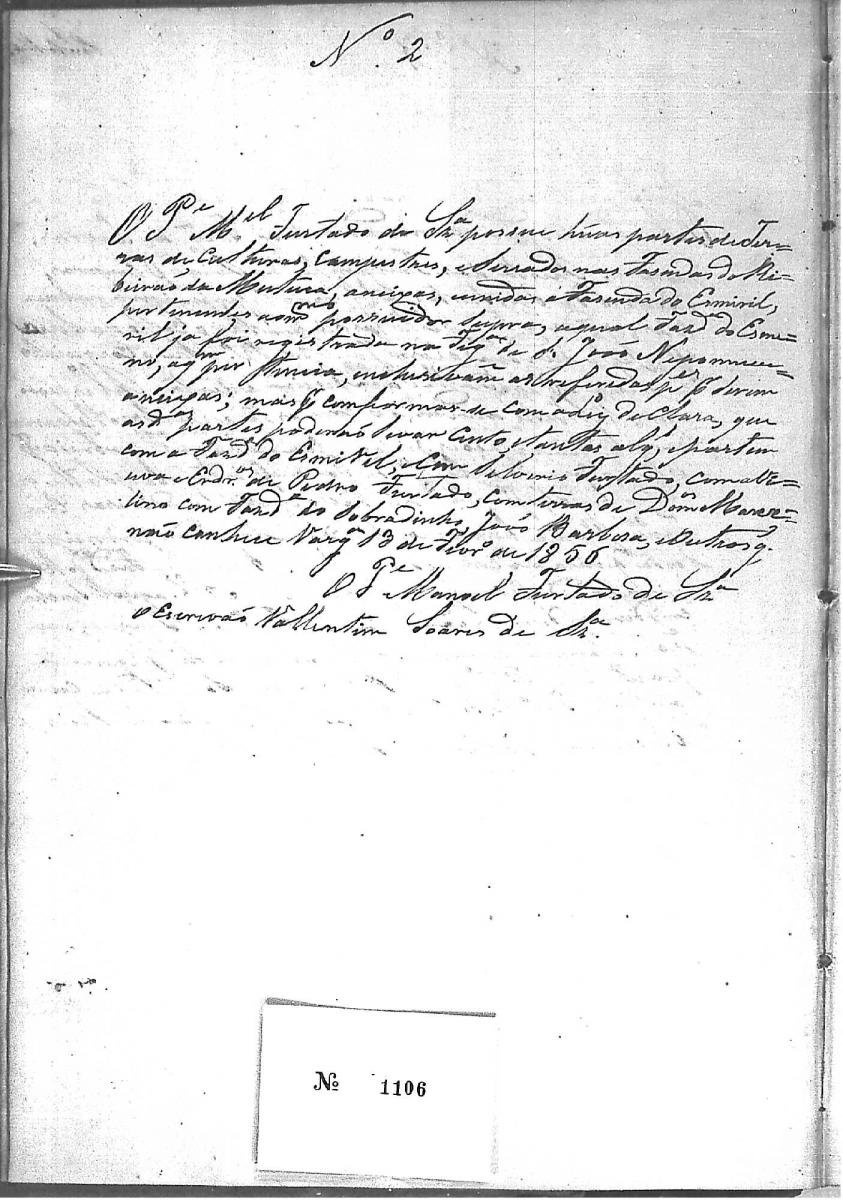 Nº. 2
O Pe. Mel. Furtado de Sza. possue huas partes de Ter=
ras de Culturas, Campestres, e Serrados nas Fasendas do Ri=
beirão da Mutuca, aneixas, e unidas a Fasenda do Esmiril,
pertencentes ao mmo. possuidor supra, a qual Fazda. do Esme=
ril ja foi registrada na Fregza. de S. João Nepomuce=
no, as referidas
aneixas; mas q conformar-se com a declara, que
as das. partes poderaõ levar cento, e tantas alqs., e partem
com a Fazda. do Esmiril, e com Silverio Furtado, com a Ve=
uva e Erdros. de Pedro Furtado, com terras de Domos. Marce=
lino com Fazda. do Sobradinho, João Barbosa, e outros q.
não conhece Varga. 13 de Fevro. de 1856
O Pe. Manoel Furtado de Sza.
o Escrivaõ Vallentim Soares de Sza.
Nº 1106